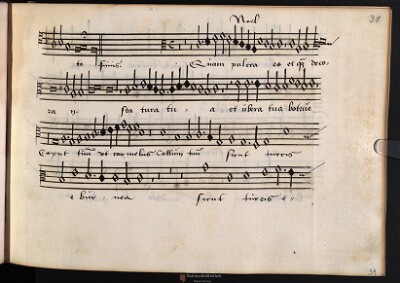 Noel
31
to finis. Quam pulcra es et q̃ deco.
ra ij. sta tura tu a et ubera tua botrus
Caput tuũ ut car melus Collum tuũ sicut turris
e bur nea sicut turris e
31